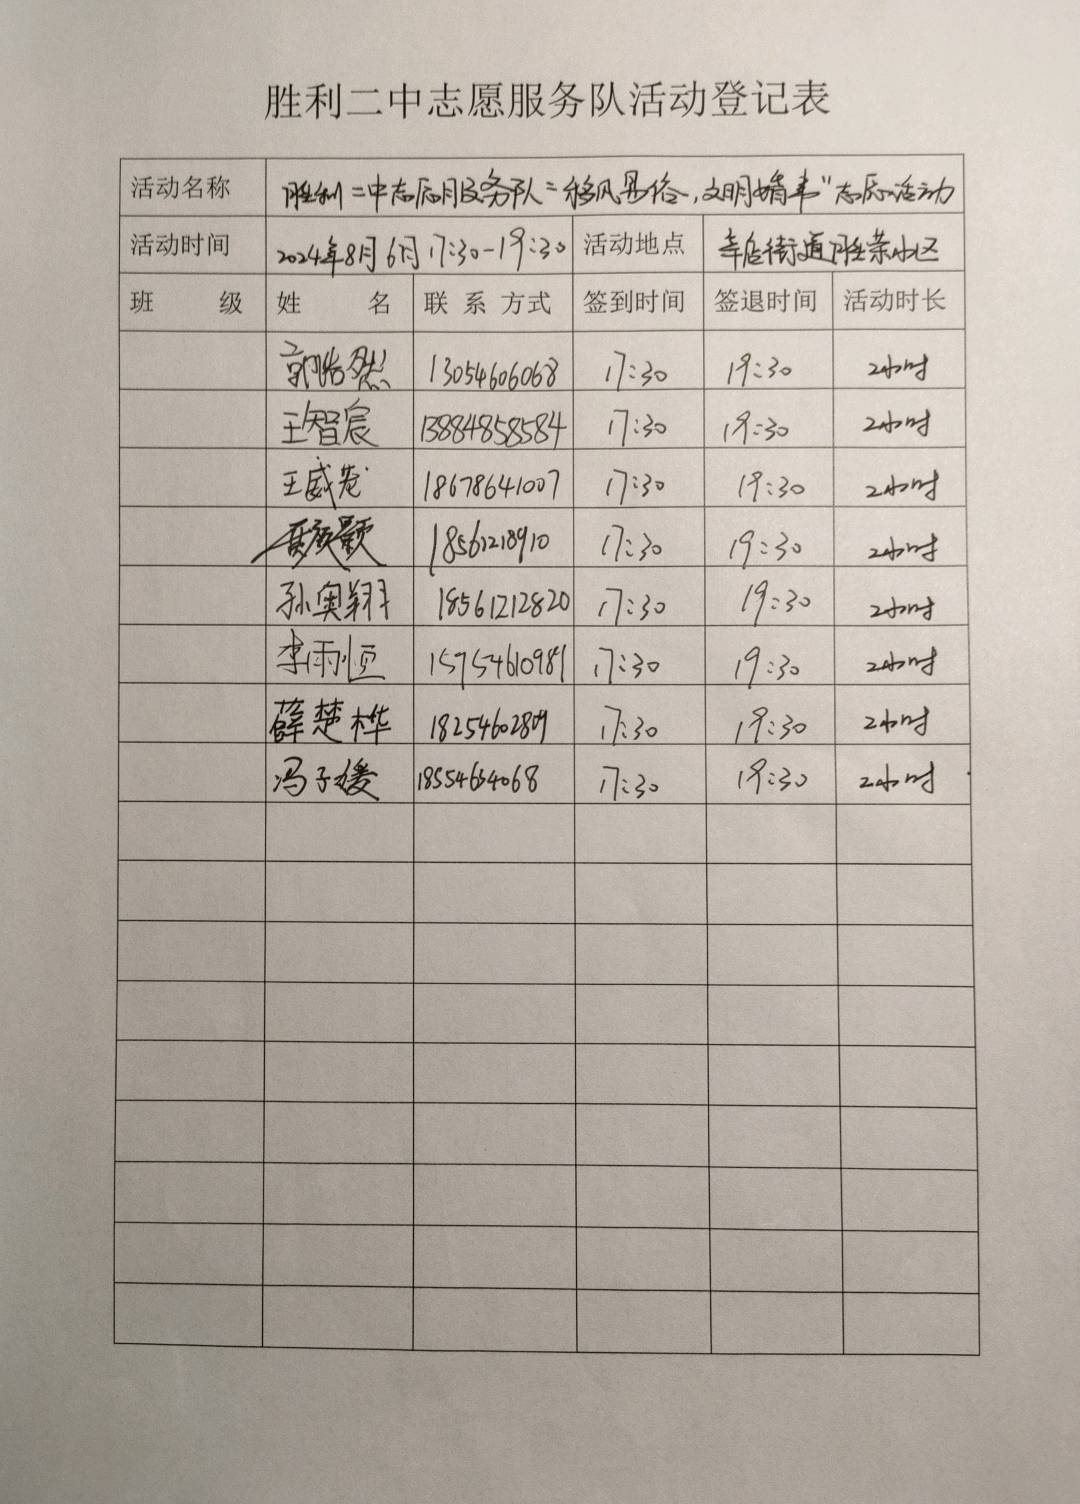 胜利二中志愿服务队活动登记表
活动名称 胜利二中志愿服务队"移风易俗,文明婚事"志愿活动
活动时间 2024年8月6月17:30-19:30 活动地点 辛店街道胜荣小区
班 级 姓 名 联系方式 签到时间 签退时间 活动时长
郭浩然 13054606068 17:30 19:30 2小时
王智宸 13884858584 17:30 19:30 2小时
王威 18678641007 17:30 19:30 2小时
18561218910 17:30 19:30 2小时
孙奥翔 18561212820 17:30 19:30 2小时
李雨恒 15754610981 17:30 19:30 2小时
薛楚桦 18254602809 17:30 19:30 2小时
冯子媛 18554654068 17:30 19:30 2小时